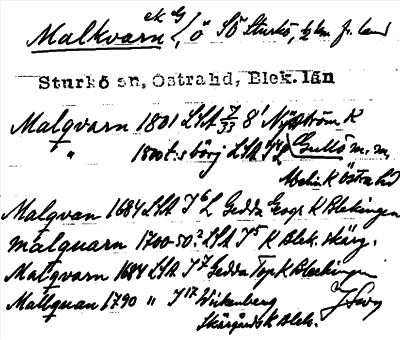 ek G
Malkvarn ö SÖ Sturkö, ½ km fr. land
Sturkö sn, Östra hd, Blek. län
Malqvarn 1801 LSA 7/33 8' Nyström K
" 1800t:s börj LSA Gullö m. m.
K Östra hd
Malqvan 1684 LSA J 6 L Gedda Geogr K Blekingen
Malquarn 1700-50? LSA J 5 K Blek. skärg.
Malqvarn 1684 LSA J 7 Gedda Top K Bleckingen
Mallquan 1790 " J 17 Wirkenberg
Skärgårds K Blek.